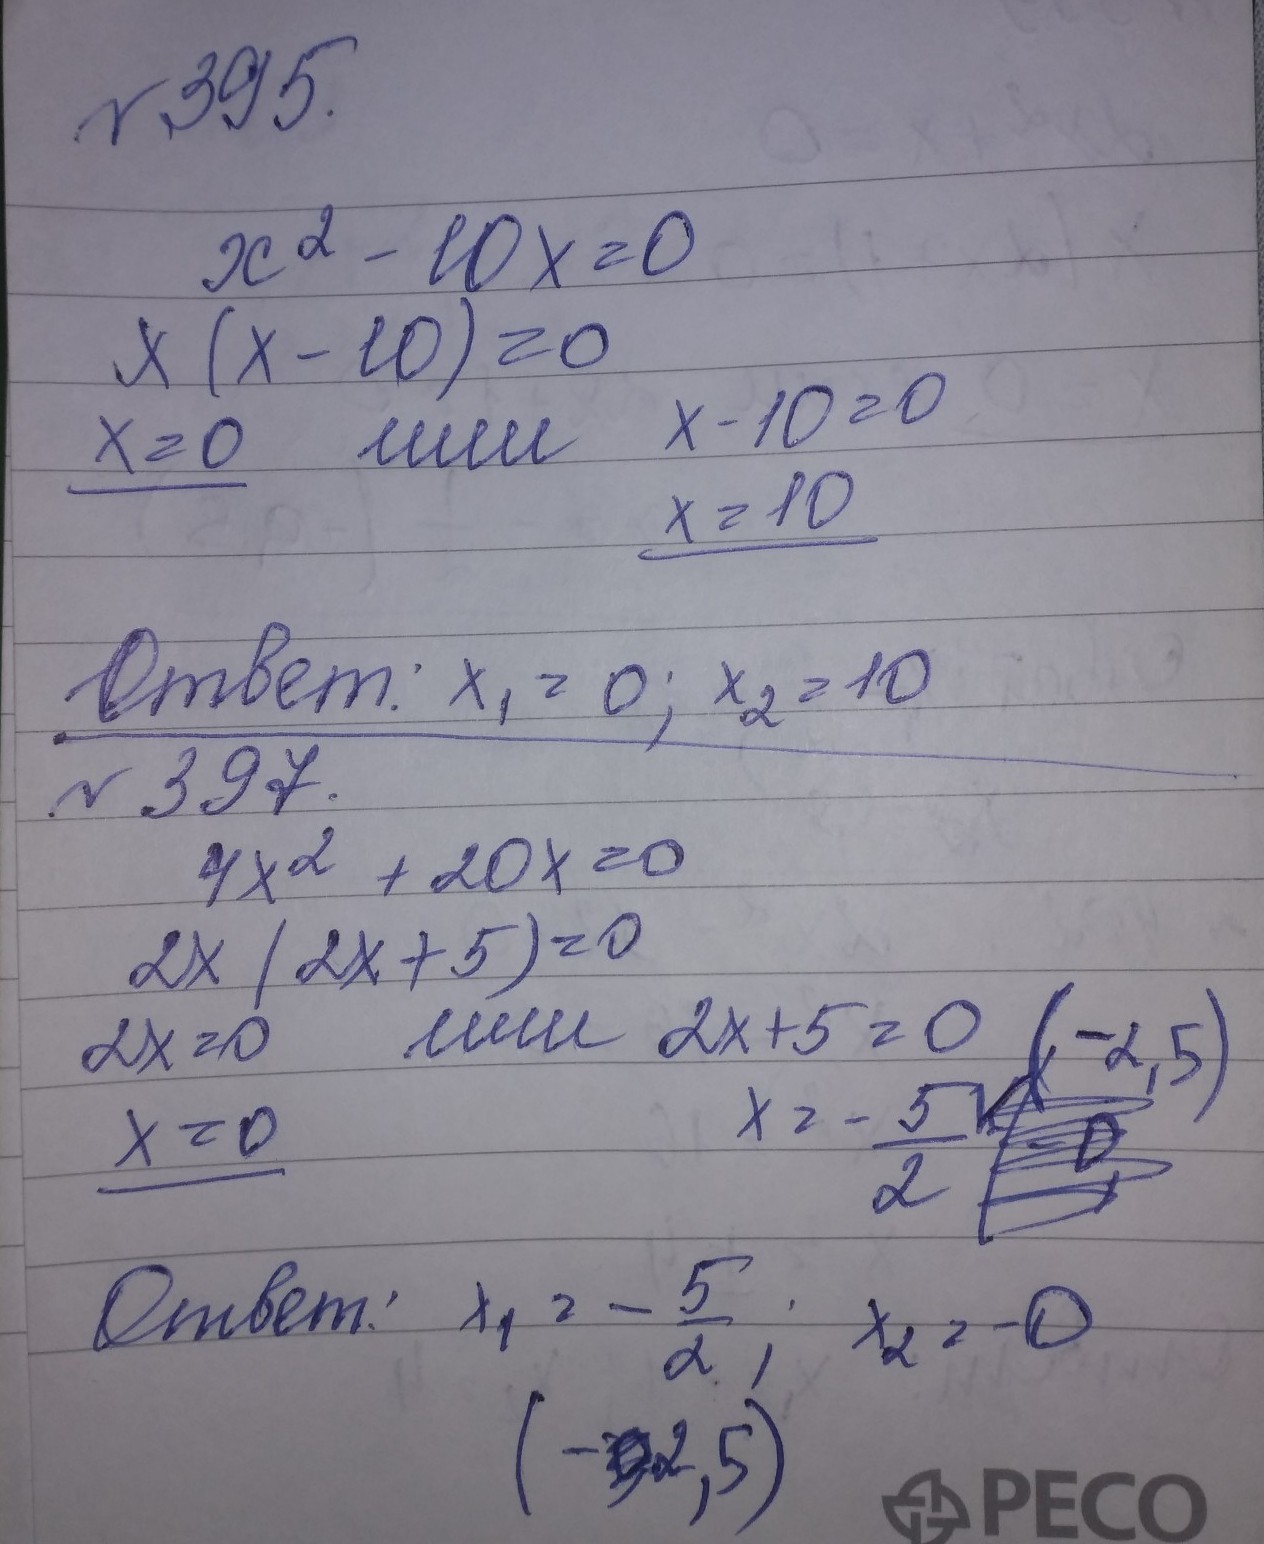 № 395.
x² - 10x = 0
x (x - 10) = 0
x = 0 или x - 10 = 0
x = 10
Ответ: x₁ = 0; x₂ = 10
№ 397.
4x² + 20x = 0
2x (2x + 5) = 0
2x = 0 или 2x + 5 = 0 (-2,5)
x = 0 x = - 5/2
Ответ: x₁ = - 5/2; x₂ = -0
(-2,5)
РЕСО